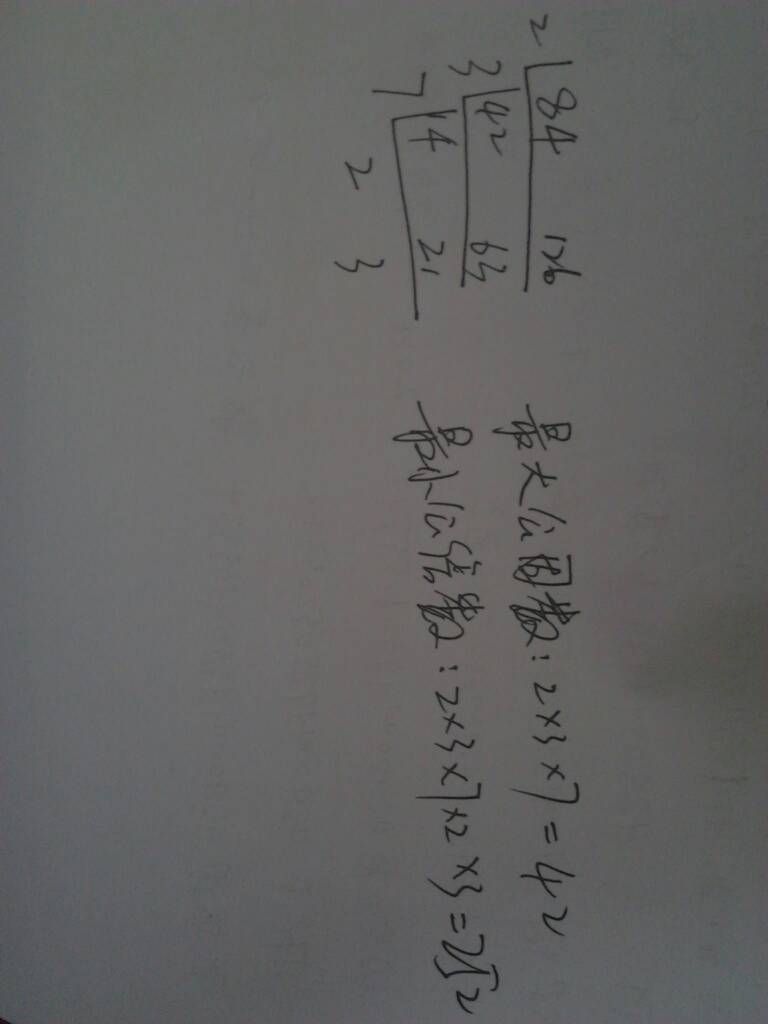 2 84 126
3 42 63
7 14 21
2 3
最大公因数:2×3×7=42
最小公倍数:2×3×7×2×3=252